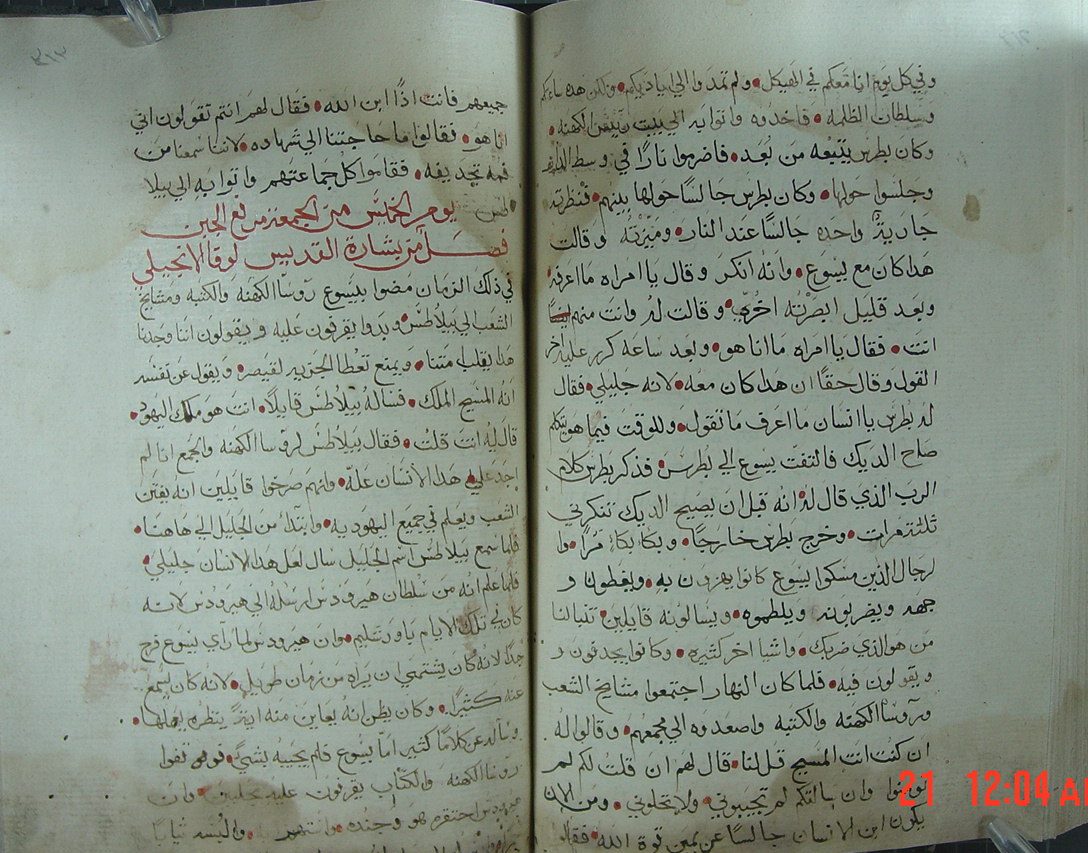 وفي كل يوم انا معكم في الهيكل • ولم تمدوا الي اياديكم • ولكن هده ساعتكم
وسلطان الظلمه • فاخدوه واتوا به الي بيت رييس الكهنه •
وكان بطرس يتبعه من بُعد • فاضرموا نارًا في وسط الدار
وجلسوا حولها • وكان بطرس جالسًا حولها بينهم • فنظرته
جاريةٌ واحده جالسًا عند النار • وميّزته وقالت
هدا كان مع يسوع • وانه انكر وقال يا امراه ما اعرفه
وبعد قليل ابصرته اخرى • وقالت له وانت منهم ايضًا
انت • فقال يا امراه ما انا هو • وبعد ساعه كرر عليه اخر
القول وقال حقًا ان هدا كان معه • لانه جليلي • فقال
له بطرس يا انسان ما اعرف ما تقول • وللوقت فيما هو يتكلم
صاح الديك فالتفت يسوع الي بطرس • فذكر بطرس كلام
الرب الذي قال له انه قبل ان يصيح الديك تنكرني
ثلثة مرات • وخرج بطرس خارجًا • وبكا بكاءً مُرًا • وا
لرجال الذين مسكوا يسوع كانوا يهزون به • ويغطون و
جهه ويضربونه ويلطموه • ويسالونه قايلين • تنبا لنا
من هو الذي ضربك • واشيا اخر كثيره • وكانوا يجدفون و
ويقولون فيه • فلما كان النهار اجتمعوا مشايخ الشعب
وروسا الكهنه والكتبه واصعدوه الي مجمعهم • وقالوا له
ان كنت انت المسيح قل لنا • قال لهم ان قلت لكم لم
تومنوا وان سالتكم لم تجيبوني • ولا تخلوني • ومن الان
يكون ابن الانسان جالسًا عن يمين قوة الله • فقالوا
جميعهم فانت اذًا ابن الله • فقال لهم انتم تقولون اني
انا هو • فقالوا ما حاجتنا الي شهاده • لاننا سمعنا من
فمه تجديفه • فقاموا كل جماعتهم واتوا به الي بيلا
طس •
يوم الخميس من الجمعه مرفع الجبن
فصل من بشارة القديس لوقا الانجيلي
في ذلك الزمان مضوا بيسوع روسا الكهنه والكتبه ومشايخ
الشعب الي بيلاطس • وبدوا يقرفون عليه ويقولون اننا وجدنا
هدا يقلب متنا • ويمنع تعطا الجزيه لقيصر • ويقول عن نفسه
انه المسيح الملك • فساله بيلاطس قايلاً • انت هو ملك اليهود •
قال له انت قلت • فقال بيلاطس لروسا الكهنه والجمع انا لم
اجد علي هدا الانسان علة • وانهم صرخوا قايلين انه يفتن
الشعب ويعلم في جميع اليهوديه • وابتداء من الجليل الي هاهنا •
فلما سمع بيلاطس اسم الجليل سال لعل هدا الانسان جليلي •
فلما علم انه من سلطان هيرودس ارسله الي هيرودس لانه
كان في تلك الايام باورشليم • وان هيرودس لما راي يسوع فرح
جدًا لانه كان يشتهي ان يراه من زمان طويل • لانه كان يسمع
عنه كثيرًا • وكان يظن انه يعاين منه اية ينظره يعملها •
وساله عن كلامًا كثير امّا يسوع فلم يجيبه بشي • فوقفوا
روسا الكهنه والكتاب يقرفون عليه وان
هيرودس احتقره هو وجنده • والبسه ثيابًا